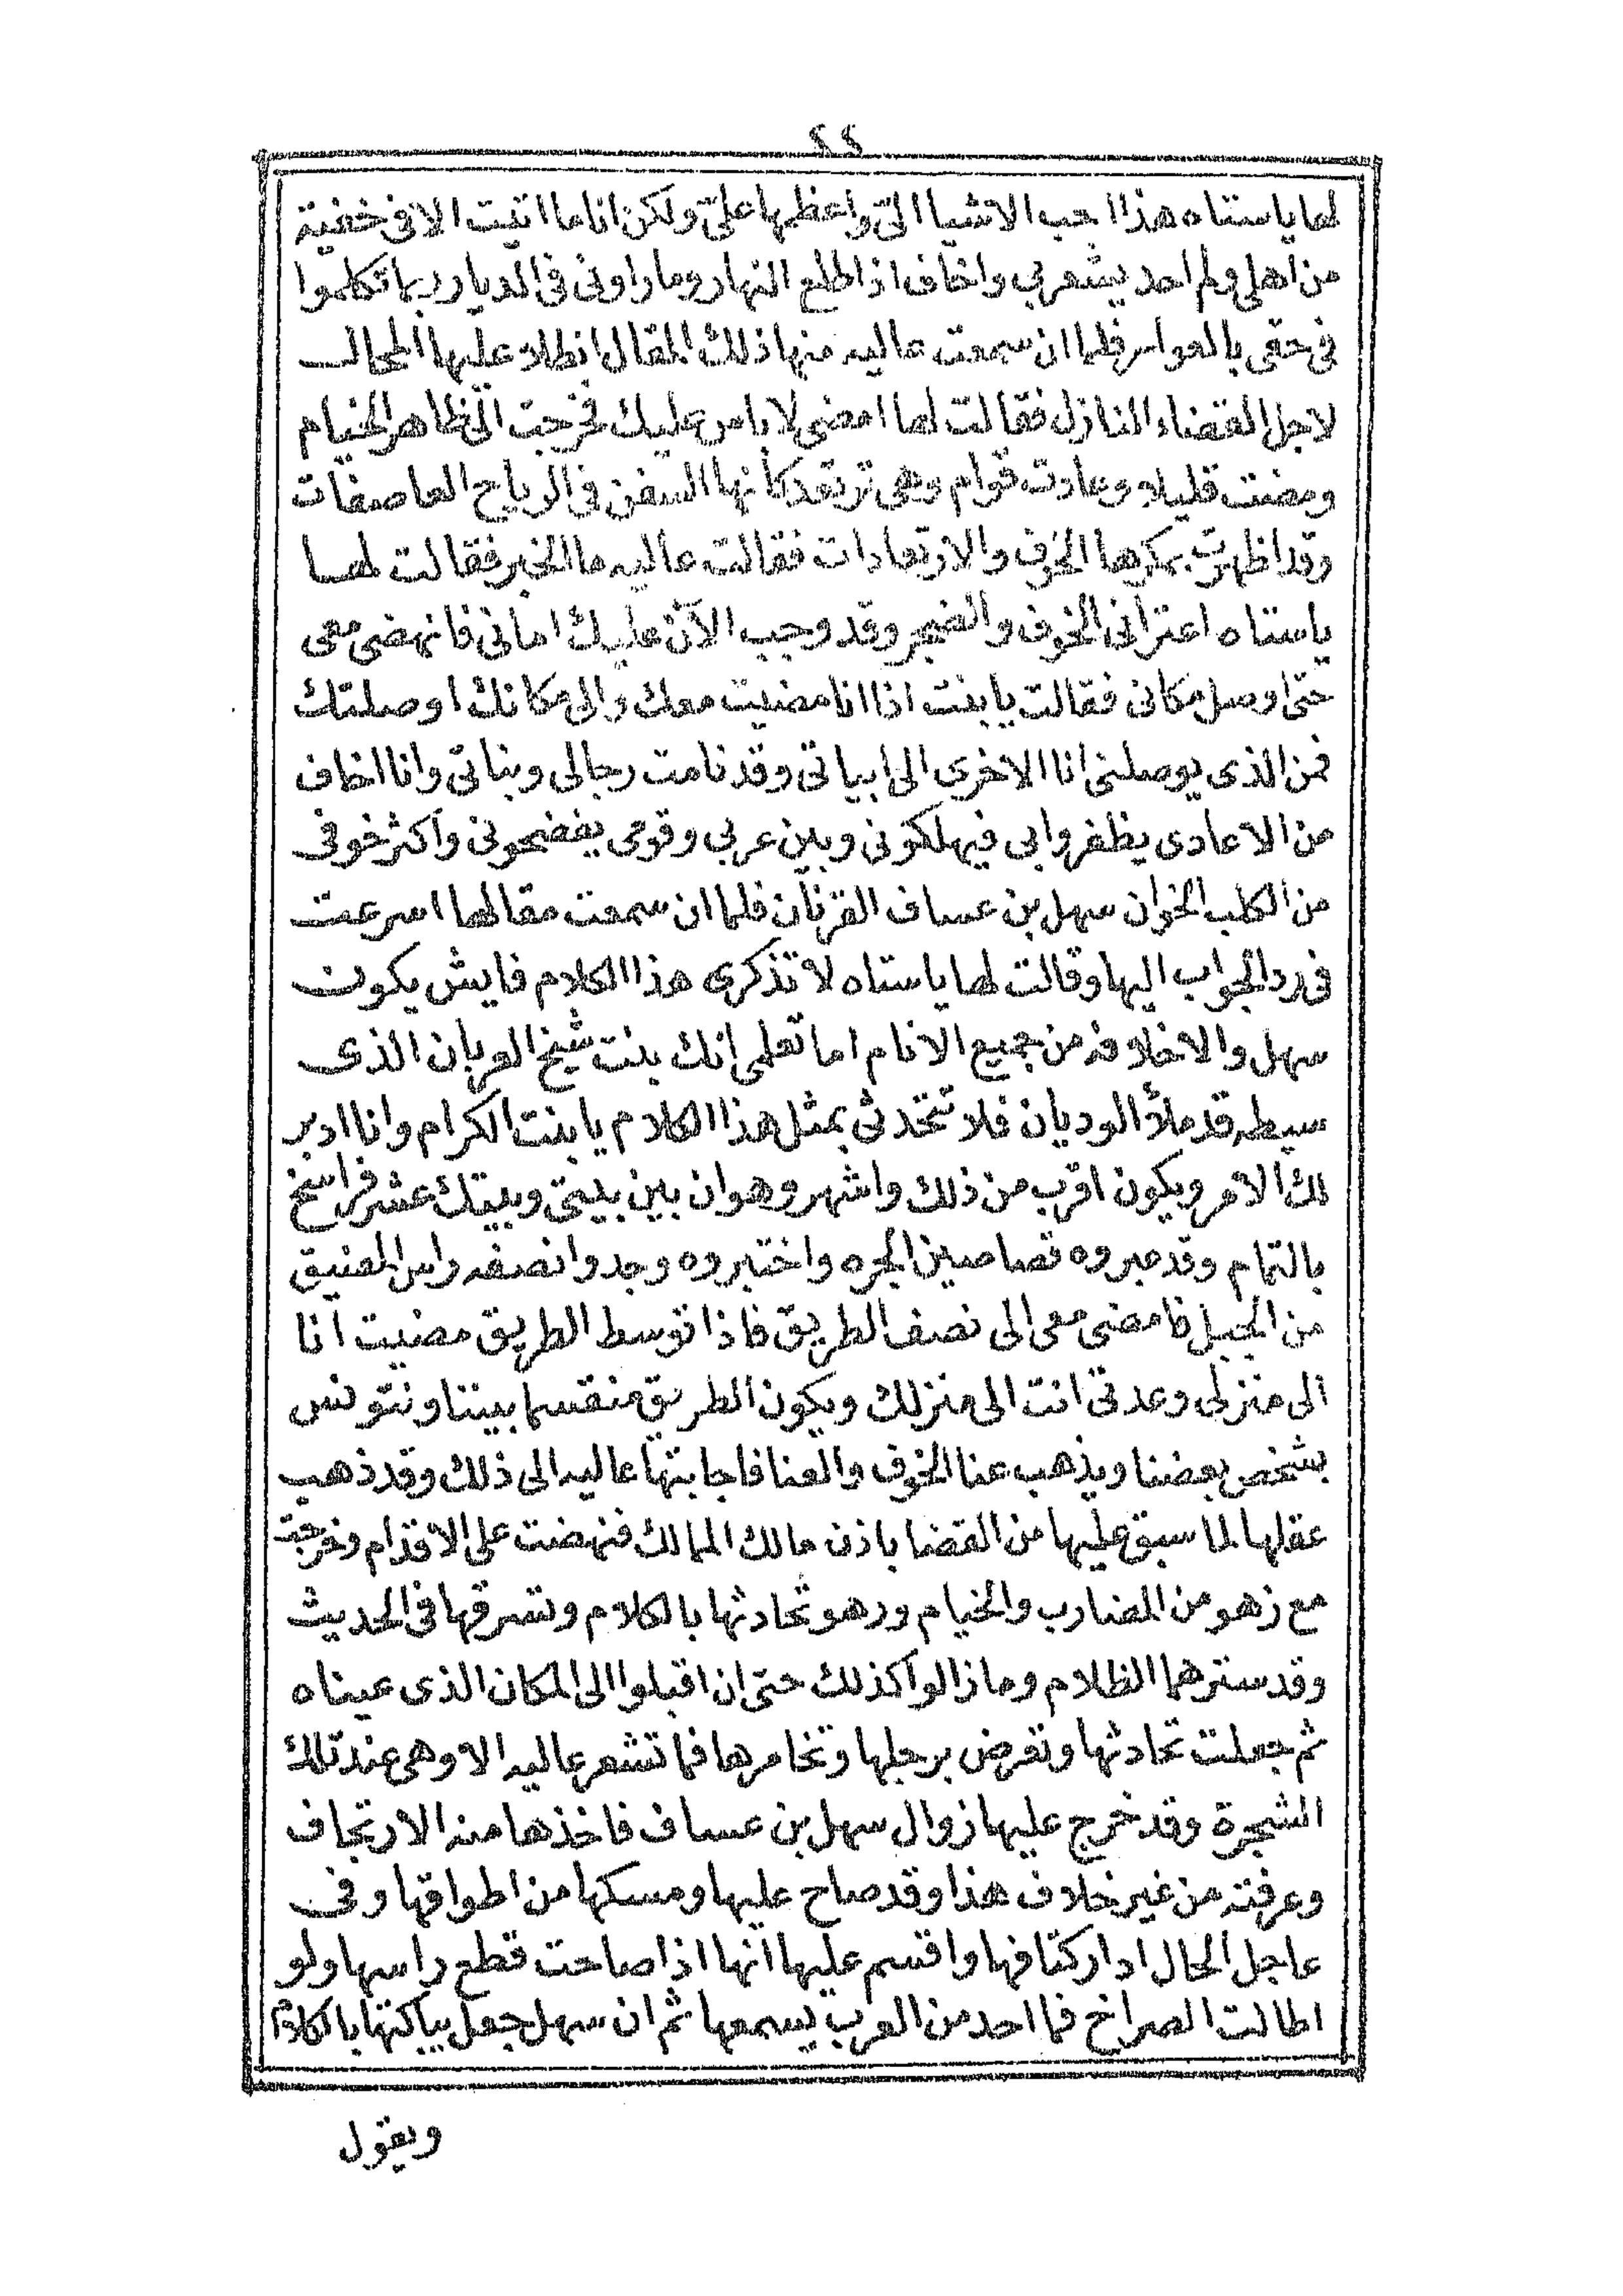 ٢٢
لها ياستاه هذا احب الاشيا الىّ واعظمها علىّ ولكن انا ما اتيت الا فى خفية
من اهلى ولم احد يشعر بى واخاف اذا طلع النهار وما راونى فى الديار ربما تكلموا
فى حقى بالعوار فلما ان سمعت عاليه منها ذلك المقال انطلا عليها المحال
لاجل القضاء النازل فقالت لها امضى لا باس عليك فخرجت الى ظاهر الخيام
ومضت قليلا وعادت قوام وهى ترتعد كأنها السفن فى الرياح العاصفات
وقد اظهرت بمكرها الخوف والارتعادات فقالت عاليه ما الخبر فقالت لها
ياستاه اعترانى الخوف والضجر وقد وجب الآن عليك امانى فانهضى معى
حتى اوصل مكانى فقالت يابنت اذا انا مضيت معك والى مكانك اوصلتك
فمن الذى يوصلنى انا الاخرى الى ابياتى وقد نامت رجالى وبناتى وانا اخاف
من الاعادى يظفروا بى فيهلكونى وبين عربى وقومى يفضحونى واكثر خوفى
من الكلب الخوان سهل بن عساف القرنان فلما ان سمعت مقالها اسرعت
فى رد الجواب اليها وقالت لها ياستاه لا تذكرى هذا الكلام فايش يكون
سهل والا خلافه من جميع الانام اما تعلمى انك بنت شيخ العربان الذى
سيطه قد ملأ الوديان فلا تتحدثى بمثل هذا الكلام يابنت الكرام وانا ادبر
لك الامر ويكون اقرب من ذلك واشهر وهو ان بين بيتى وبيتك عشر فراسخ
بالتمام وقد عبروه قصاصين الجره واختبروه وجدوا نصفه راس المضيق
من الجبل فامضى معى الى نصف الطريق فاذا توسط الطريق مضيت انا
الى منزلى وعدتى انت الى منزلك ويكون الطريق منقسما بيننا ونتونس
بشخص بعضنا ويذهب عنا الخوف والعنا فاجابتها عاليه الى ذلك وقد ذهب
عقلها لما سبق عليها من القضا باذن مالك الممالك فنهضت على الاقدام وخرجت
مع زهو من المضارب والخيام وزهو تحادثها بالكلام وتسرقها فى الحديث
وقد سترهما الظلام وما زالوا كذلك حتى ان اقبلوا الى المكان الذى عيناه
ثم جعلت تحادثها وتعرض برجلها وتخامرها فما تشعر عاليه الا وهى عند تلك
الشجرة وقد خرج عليها زوال سهل بن عساف فاخذها منه الارتجاف
وعرفته من غير خلاف هذا وقد صاح عليها ومسكها من اطواقها وفى
عاجل الحال ادار كتافها واقسم عليها انها اذا صاحت قطع راسها ولو
اطالت الصراخ فما احد من العرب يسمعها ثم ان سهل جعل يباكتها بالكلام
ويقول